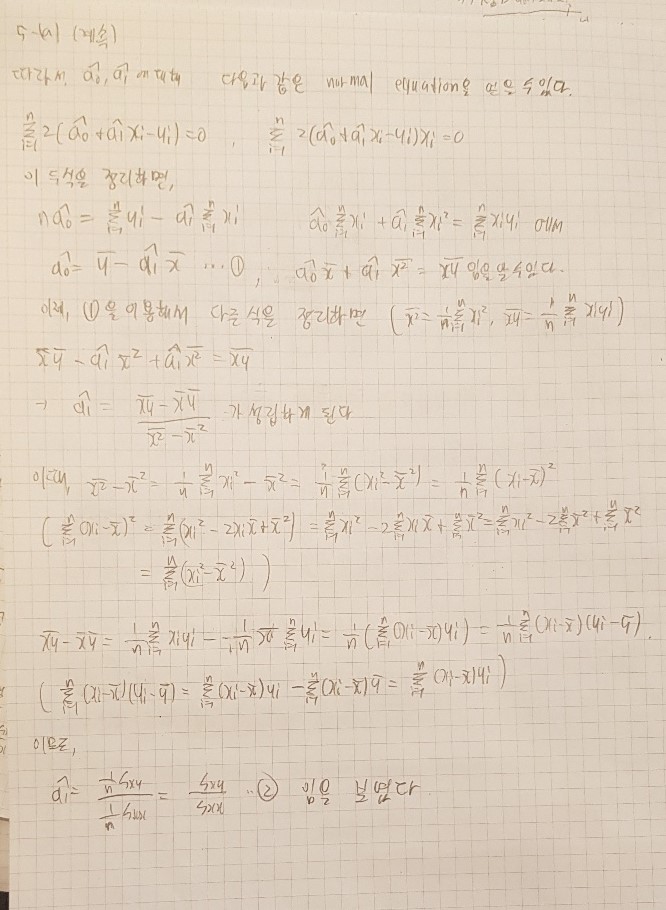 5-나) (계속)
따라서, â₀, â₁에 대해 다음과 같은 normal equation을 얻을 수 있다.
Σᵢ₌₁ⁿ 2(â₀+â₁xᵢ-yᵢ)=0, Σᵢ₌₁ⁿ 2(â₀+â₁xᵢ-yᵢ)xᵢ=0
이 두식을 정리하면,
nâ₀ = Σᵢ₌₁ⁿ yᵢ - â₁ Σᵢ₌₁ⁿ xᵢ â₀ Σᵢ₌₁ⁿ xᵢ + â₁ Σᵢ₌₁ⁿ xᵢ² = Σᵢ₌₁ⁿ xᵢyᵢ 에서
â₀ = ȳ - â₁x̄ … ①, â₀x̄ + â₁x̄² = x̄ȳ 임을 알 수 있다.
이제, ①을 이용해서 다른 식을 정리하면 (x̄² = 1/n Σᵢ₌₁ⁿ xᵢ², x̄ȳ = 1/n Σᵢ₌₁ⁿ xᵢyᵢ)
x̄ȳ - â₁x̄² + â₁x̄² = x̄ȳ
→ â₁ = (x̄ȳ - x̄ȳ)/(x̄² - x̄²) 가 성립하게 된다
이때, x̄² - x̄² = 1/n Σᵢ₌₁ⁿ xᵢ² - x̄² = 1/n Σᵢ₌₁ⁿ (xᵢ² - x̄²) = 1/n Σᵢ₌₁ⁿ (xᵢ-x̄)²
(Σᵢ₌₁ⁿ (xᵢ-x̄)² = Σᵢ₌₁ⁿ (xᵢ² - 2xᵢx̄ + x̄²) = Σᵢ₌₁ⁿ xᵢ² - 2Σᵢ₌₁ⁿ xᵢx̄ + Σᵢ₌₁ⁿ x̄² = Σᵢ₌₁ⁿ xᵢ² - 2Σᵢ₌₁ⁿ x̄² + Σᵢ₌₁ⁿ x̄²
= Σᵢ₌₁ⁿ (xᵢ² - x̄²))
x̄ȳ - x̄ȳ = 1/n Σᵢ₌₁ⁿ xᵢyᵢ - 1/n x̄ Σᵢ₌₁ⁿ yᵢ = 1/n (Σᵢ₌₁ⁿ (xᵢ-x̄)yᵢ) = 1/n Σᵢ₌₁ⁿ (xᵢ-x̄)(yᵢ-ȳ).
(Σᵢ₌₁ⁿ (xᵢ-x̄)(yᵢ-ȳ) = Σᵢ₌₁ⁿ (xᵢ-x̄)yᵢ - Σᵢ₌₁ⁿ (xᵢ-x̄)ȳ = Σᵢ₌₁ⁿ (xᵢ-x̄)yᵢ)
이므로,
â₁ = (1/n Sxy)/(1/n Sxx) = Sxy/Sxx … ②